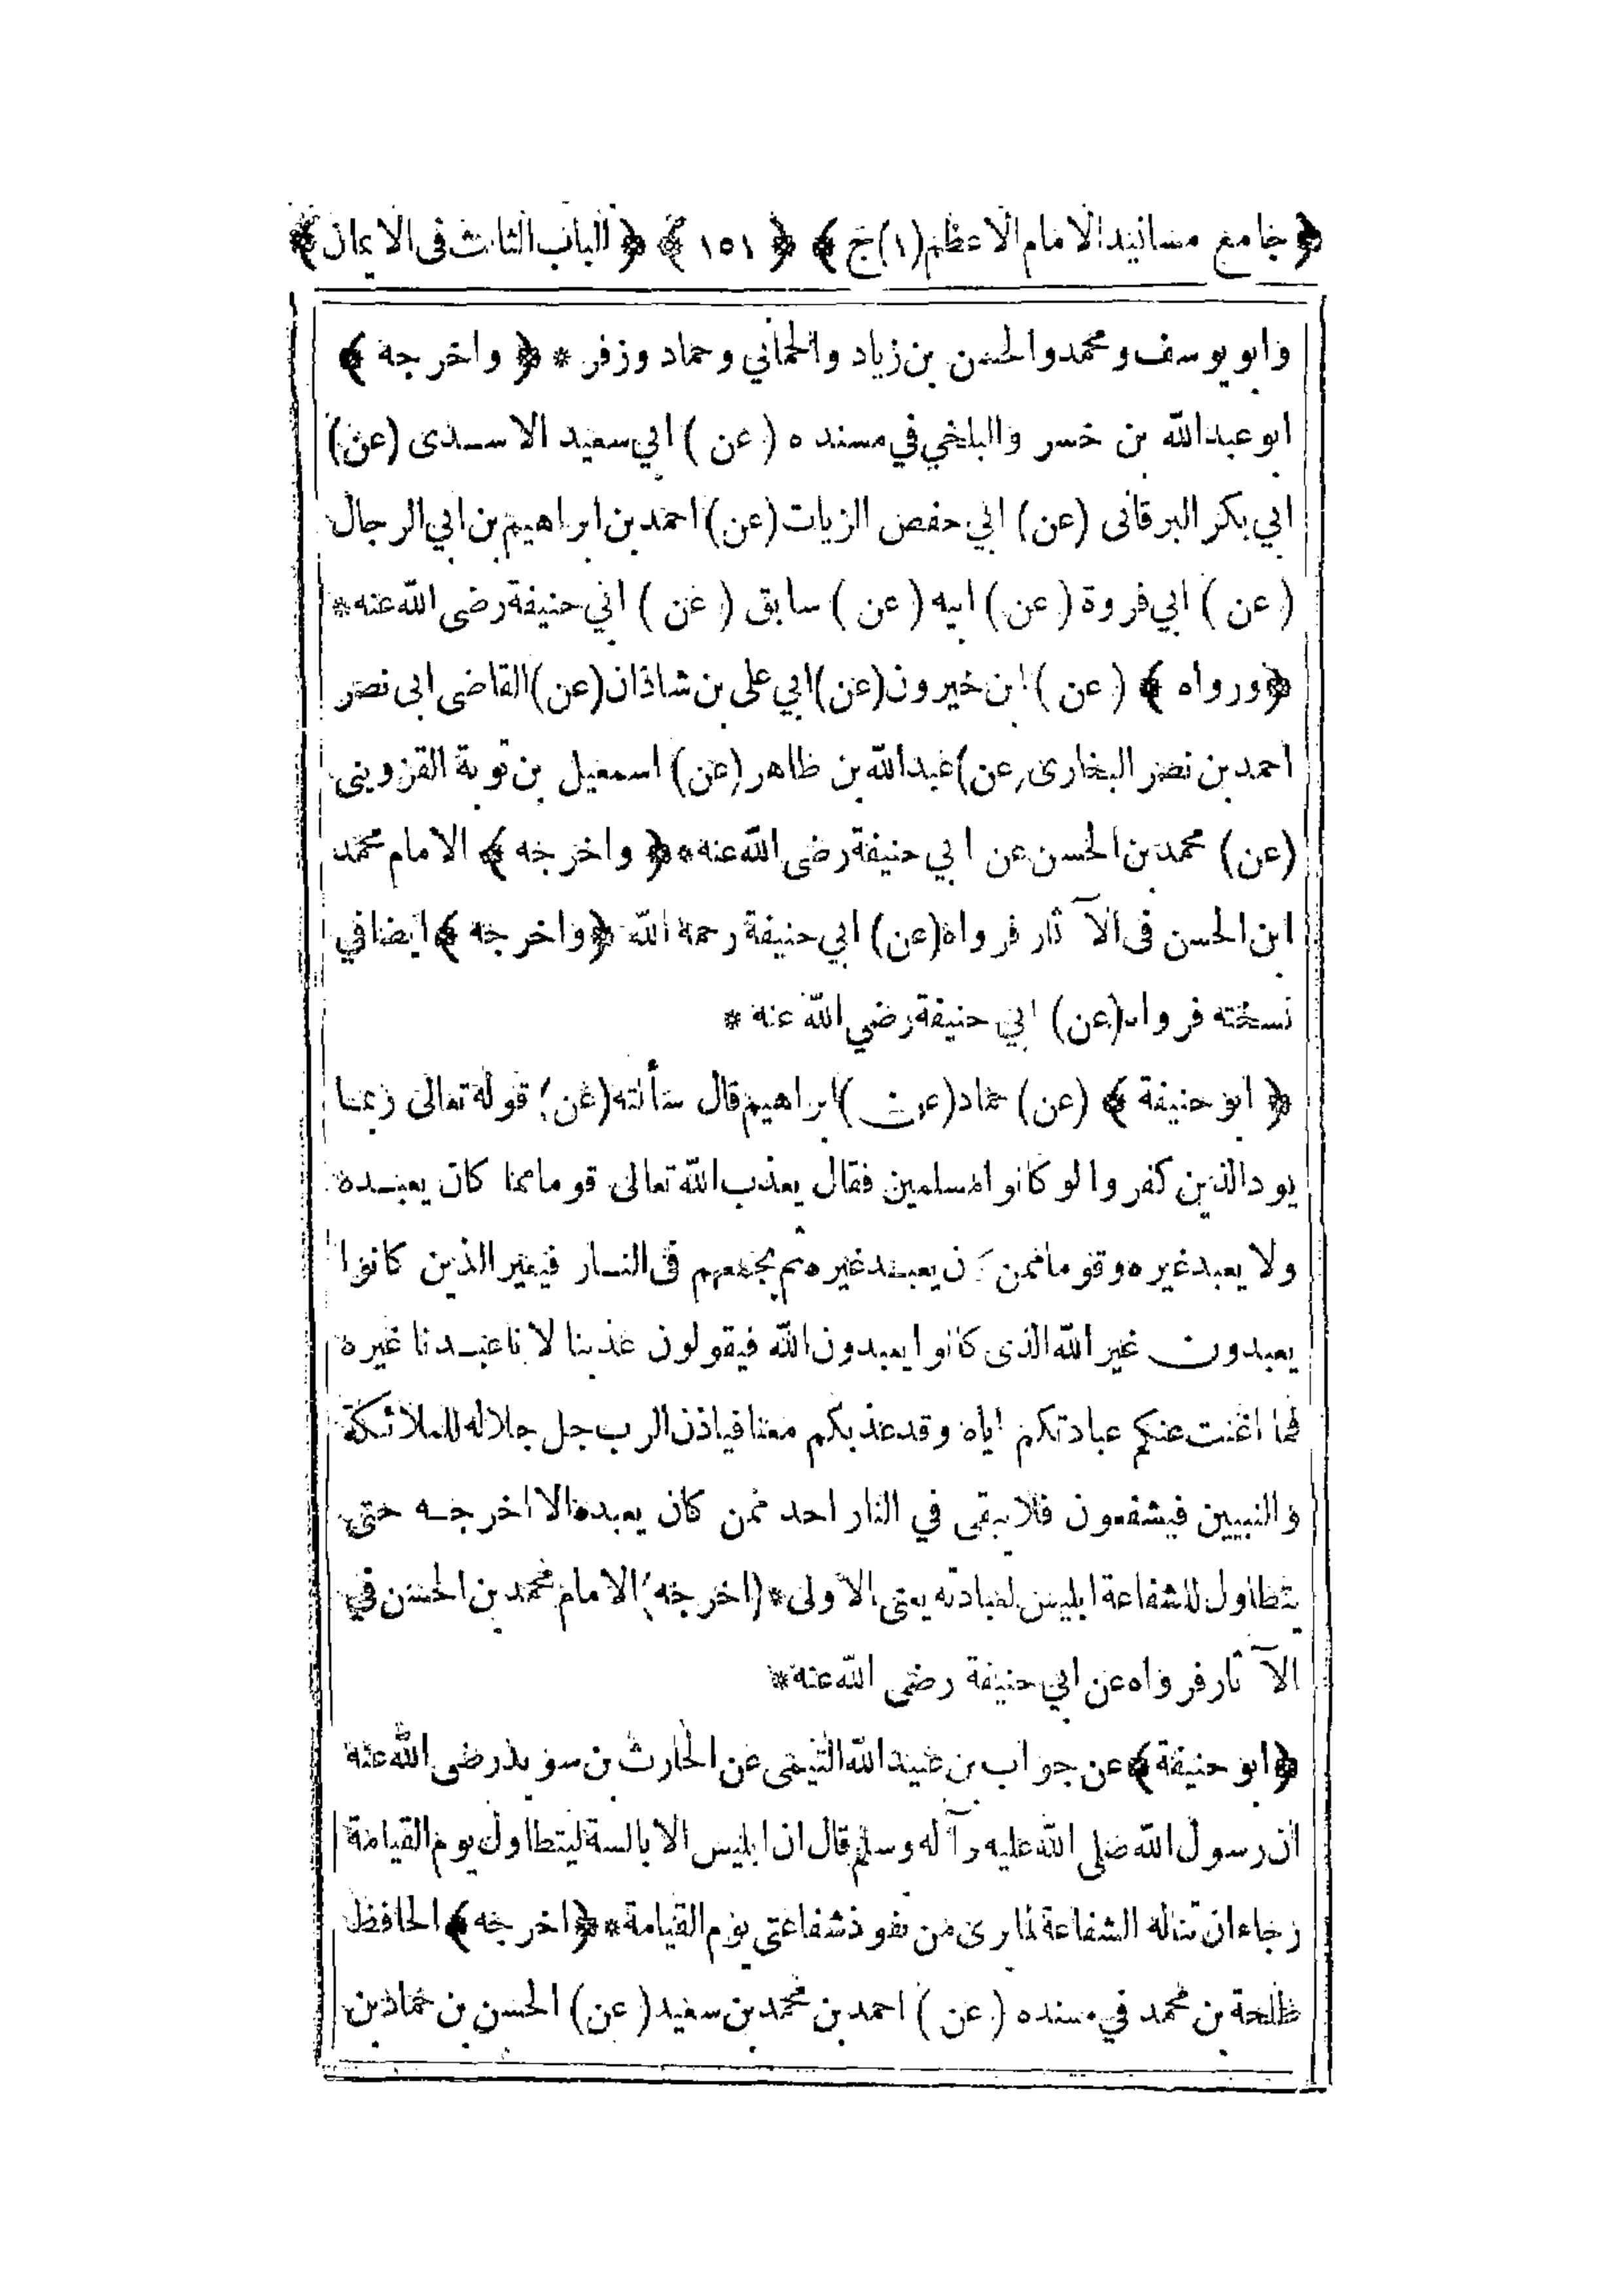 ﴿ جامع مسانيد الامام الاعظم (١) ج ﴾ ﴿ ١٥١ ﴾ ﴿ الباب الثالث فى الايمان ﴾
وابو يوسف ومحمد والحسن بن زياد والحماني وحماد وزفر * ﴿ واخرجه ﴾
ابو عبد الله بن خسر والبلخي في مسنده (عن) ابي سعيد الاسدى (عن)
ابي بكر البرقانى (عن) ابي حفص الزيات (عن) احمد بن ابراهيم بن ابي الرجال
(عن) ابي فروة (عن) ابيه (عن) سابق (عن) ابي حنيفة رضى الله عنه *
﴿ ورواه ﴾ (عن) ابن خيرون (عن) ابي على بن شاذان (عن) القاضى ابى نصر
احمد بن نصر البخارى (عن) عبد الله بن طاهر (عن) اسمعيل بن توبة القزوينى
(عن) محمد بن الحسن عن ابي حنيفة رضى الله عنه * ﴿ واخرجه ﴾ الامام محمد
ابن الحسن فى الآثار فرواه (عن) ابي حنيفة رحمه الله ﴿ واخرجه ﴾ ايضا في
نسخته فرواه (عن) ابي حنيفة رضي الله عنه *
﴿ ابو حنيفة ﴾ (عن) حماد (عن) ابراهيم قال سألته (عن) قوله تعالى ربما
يود الذين كفروا لو كانوا مسلمين فقال يعذب الله تعالى قوما ممن كان يعبده
ولا يعبد غيره وقوما ممن كان يعبد غيره ثم يجمعهم فى النار فيعير الذين كانوا
يعبدون غير الله الذى كانوا يعبدون الله فيقولون عذبنا لانا عبدنا غيره
فما اغنت عنكم عبادتكم اياه وقد عذبكم معنا فياذن الرب جل جلاله للملائكة
والنبيين فيشفعون فلا يبقى في النار احد ممن كان يعبده الا اخرجه حتى
يتطاول للشفاعة ابليس لعبادته يعنى الاولى * (اخرجه) الامام محمد بن الحسن في
الآثار فرواه عن ابي حنيفة رضى الله عنه *
﴿ ابو حنيفة ﴾ عن جواب بن عبيد الله التيمى عن الحارث بن سويد رضى الله عنه
ان رسول الله صلى الله عليه وآله وسلم قال ان ابليس الابالسة ليتطاول يوم القيامة
رجاء ان تناله الشفاعة لما يرى من نفوذ شفاعتى يوم القيامة * ﴿ اخرجه ﴾ الحافظ
طلحة بن محمد في مسنده (عن) احمد بن محمد بن سعيد (عن) الحسن بن حماد بن